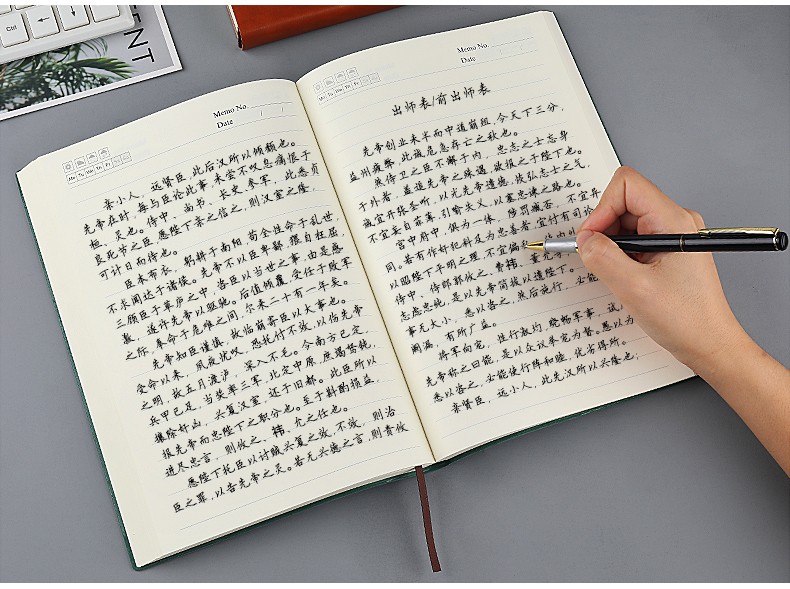 Memo No.
Date / /
Mo Tu We Th Fr Sa Su
亲小人,远贤臣,此后汉所以倾颓也。
先帝在时,每与臣论此事,未尝不叹息痛恨于
桓、灵也。侍中、尚书、长史、参军,此悉贞
良死节之臣,愿陛下亲之信之,则汉室之隆,
可计日而待也。
臣本布衣,躬耕于南阳,苟全性命于乱世,
不求闻达于诸侯。先帝不以臣卑鄙,猥自枉屈,
三顾臣于草庐之中,咨臣以当世之事,由是感
激,遂许先帝以驱驰。后值倾覆,受任于败军
之际,奉命于危难之间,尔来二十有一年矣。
先帝知臣谨慎,故临崩寄臣以大事也。
受命以来,夙夜忧叹,恐托付不效,以伤先帝
之明,故五月渡泸,深入不毛。今南方已定,
兵甲已足,当奖率三军,北定中原,庶竭驽钝,
攘除奸凶,兴复汉室,还于旧都。此臣所以
报先帝而忠陛下之职分也。至于斟酌损益,
进尽忠言,则攸之、祎、允之任也。
愿陛下托臣以讨贼兴复之效,不效,则治
臣之罪,以告先帝之灵。若无兴德之言,则责攸
Memo No.
Date
Mo Tu We Th Fr
出师表/前出师表
先帝创业未半而中道崩殂,今天下三分,
益州疲弊,此诚危急存亡之秋也。
然侍卫之臣不懈于内,忠志之士忘身
于外者,盖追先帝之殊遇,欲报之于陛下也。
诚宜开张圣听,以光先帝遗德,恢弘志士之气,
不宜妄自菲薄,引喻失义,以塞忠谏之路也。
宫中府中,俱为一体,陟罚臧否,不宜异
同。若有作奸犯科及为忠善者,宜付有司论
以昭陛下平明之理,不宜偏
侍中、侍郎郭攸之、费祎、董允等
志虑忠纯,是以先帝简拔以遗陛下。
事无大小,悉以咨之,然后施行,必能
阙漏,有所广益。
将军向宠,性行淑均,晓畅军事,试
先帝称之曰能,是以众议举宠为督。愚以为
悉以咨之,必能使行阵和睦,优劣得所。
亲贤臣,远小人,此先汉所以兴隆也;
Ctrl